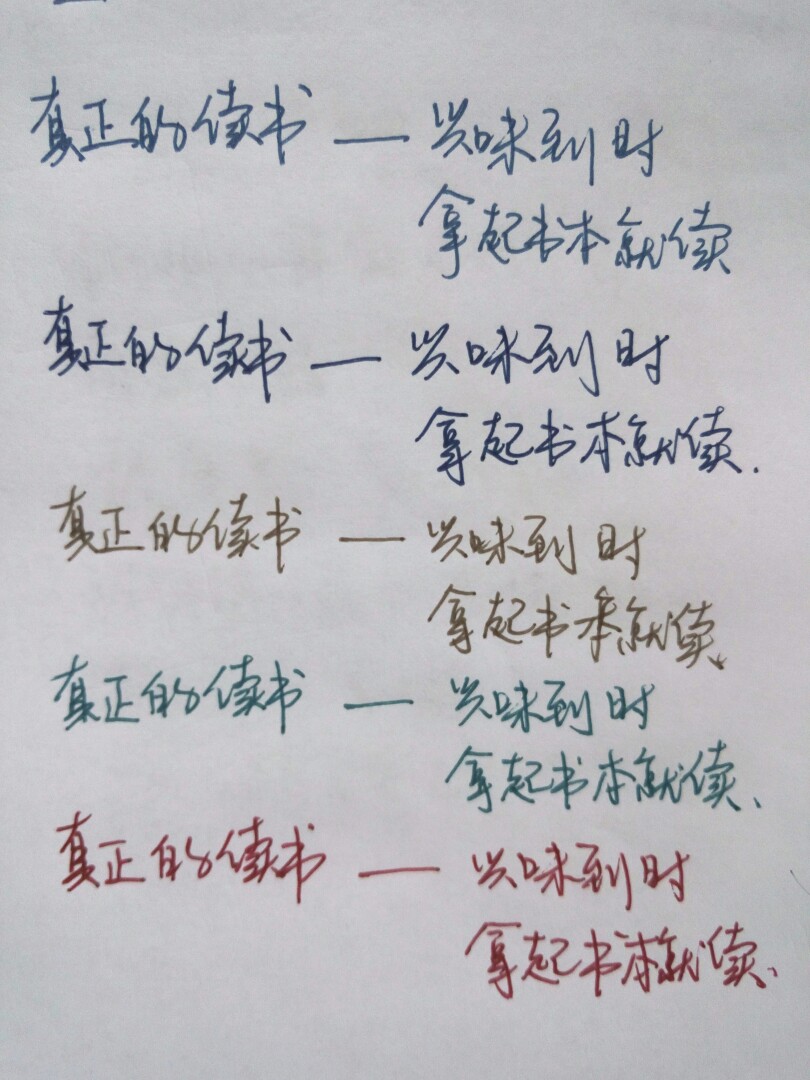 真正的读书 — 兴味到时
拿起书本就读
真正的读书 — 兴味到时
拿起书本就读.
真正的读书 — 兴味到时
拿起书本就读.
真正的读书 — 兴味到时
拿起书本就读、
真正的读书 — 兴味到时
拿起书本就读、